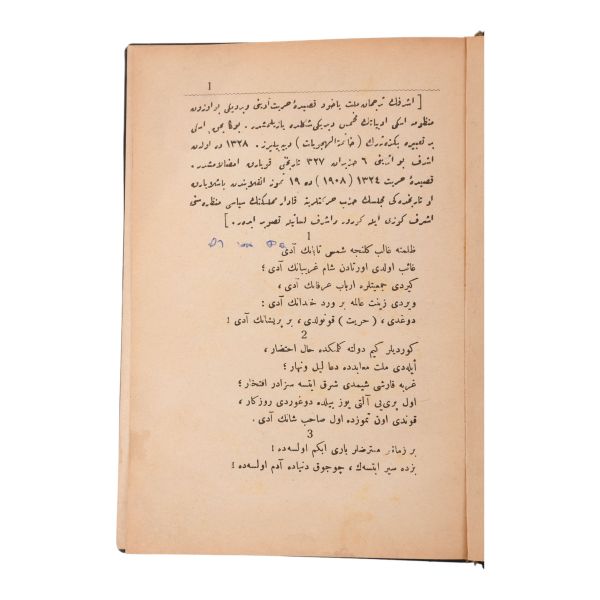 1
[ اشرفك ترجمان ملت ياخود قصيدۀ حريت آدينى ويرديكى بو اوزون
منظومه اسكى ادبياتك مخمس ويريكى شكلنده يازيلمشدر. بوكا بحق اسكى
بر تعبيره بكزه‌ترك ( خاتمة الهجويات ) ديه‌بيليرز. ١٣٢٨ ده اولن
اشرف بو اثرينى ٦ حزيران ٣٢٧ تاريخنى قويارق امضالامشدر.
قصيدۀ حريت ١٣٢٤ ( ١٩٠٨ ) ده ١٩ تموز انقلابندن باشلايارق
او تاريخده‌كى مجلسك حزب حركتلرينه قادار مملكتك سياسى منظره‌سنى
اشرف كوزى ايله كورور و اشرف لسانيله تصوير ايدر. ]
1
ظلمته غالب كلنجه شمس تابانك آدى
غائب اولدى اورتادن شام غريبانك آدى ؛
كيردى جمعيتلره ارباب عرفانك آدى ،
ويردى زينت عالمه بر ورد خندانك آدى :
دوغدى ، ( حريت ) قونولدى ، بر پريشانك آدى !
2
كورديلر كيم دولته كلمكده حال احتضار ،
ايله‌دى ملت معابدده دعا ليل ونهار ؛
غربه قارشى شيمدى شرق ايتسه سزادر افتخار ؛
اول پرى‌يى آلتى يوز ييلده دوغوردى روزكار ،
قوندى اون تموزده اول صاحب شانك آدى .
3
بر زمانلر معترضلر بارى ابكم اولسه‌ده !
بزده سير ايتسه‌ك ، چوجوق دنياده آدم اولسه‌ده !